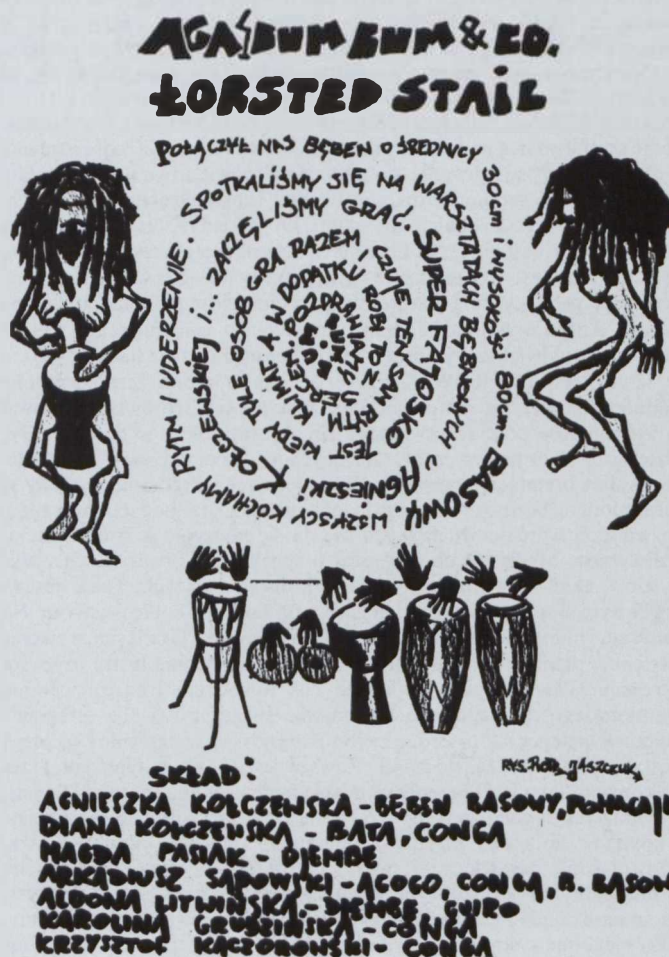 AGA BUM BUM & CO.
ŁORSTED STAIL
POŁĄCZYŁ NAS BĘBEN O ŚREDNICY 30cm i WYSOKOŚCI 80cm – BASOWY. WSZYSCY KOCHAMY RYTM I UDERZENIE. SPOTKALIŚMY SIĘ NA WARSZTATACH BĘBNOWYCH u AGNIESZKI KOŁCZEWSKIEJ i... ZACZĘLIŚMY GRAĆ. SUPER FAJOSKO JEST KIEDY TYLE OSÓB GRA RAZEM CZUJE TEN SAM RYTM KLIMAT A W DODATKU ROBI TO Z SERCEM. POZDRAWIAMY BUM BUM
RYS. PIOTR JASZCZUK
SKŁAD:
AGNIESZKA KOŁCZEWSKA - BĘBEN BASOWY,
DIANA KOŁCZEWSKA - BATA, CONGA
MAGDA PASIAK - DJEMBE
ARKADIUSZ SADOWSKI - AGOGO, CONGA, B. BASOW
ALDONA LITWIŃSKA - DJEMBE, GUIRO
KAROLINA GRUDZIŃSKA - CONGA
KRZYSZTOF KACZOROWSKI - CONGA